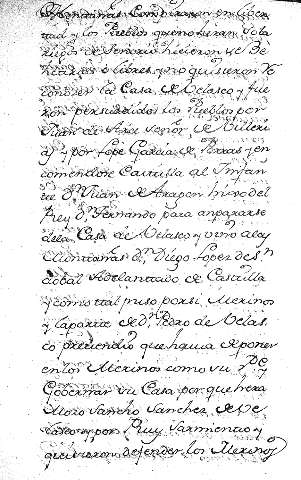 tad y los Pueblos que no heran Sola
riegos de Señorio hizieron se Be
hetrias o libres, y no quisieron Re
conozer la Casa de Velasco y fue
ron persuadidos los Pueblos por
Juan de Señor de Valleri
as y por Lope Garcia de Porras y en
comendose Castilla al Infan
te Dn Juan de Aragon hijo del
Rey Dn Fernando para ampararse
de la Casa de Velasco y vino a las
Dn Diego Lopez de Sn
dobal Adelantado de Castilla
y como tal puso por si Merinos
y la parte de Dn Pedro de Velas
co pretendio que havia de poner
en los Merinos como su
Governar su Casa por que hera
Mozo Sancho Sanchez de Ve
lasco y por Ruy Sarmiento y
quisieron defender los Merinos